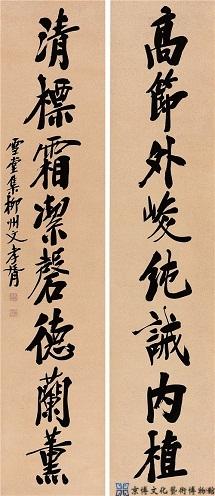 高節外峻純誠內植
清標霜潔馨德蘭薰
雪堂集柳州文孝胥
京博文化藝術博物館